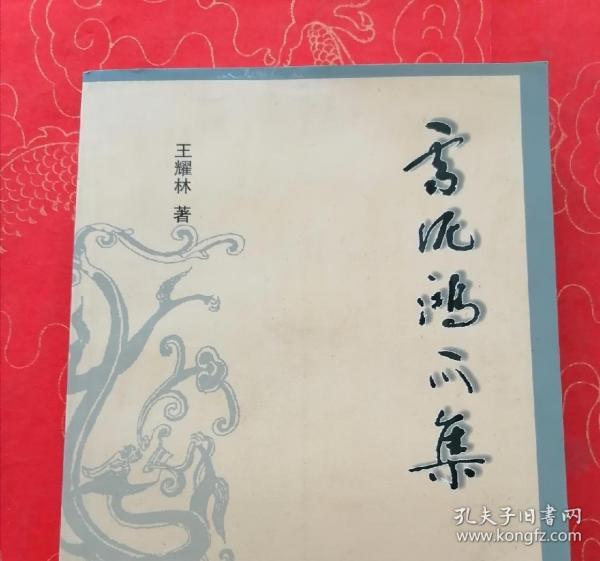 雪泥鸿爪集
王耀林 著
孔夫子旧書网
www.kongfz.com